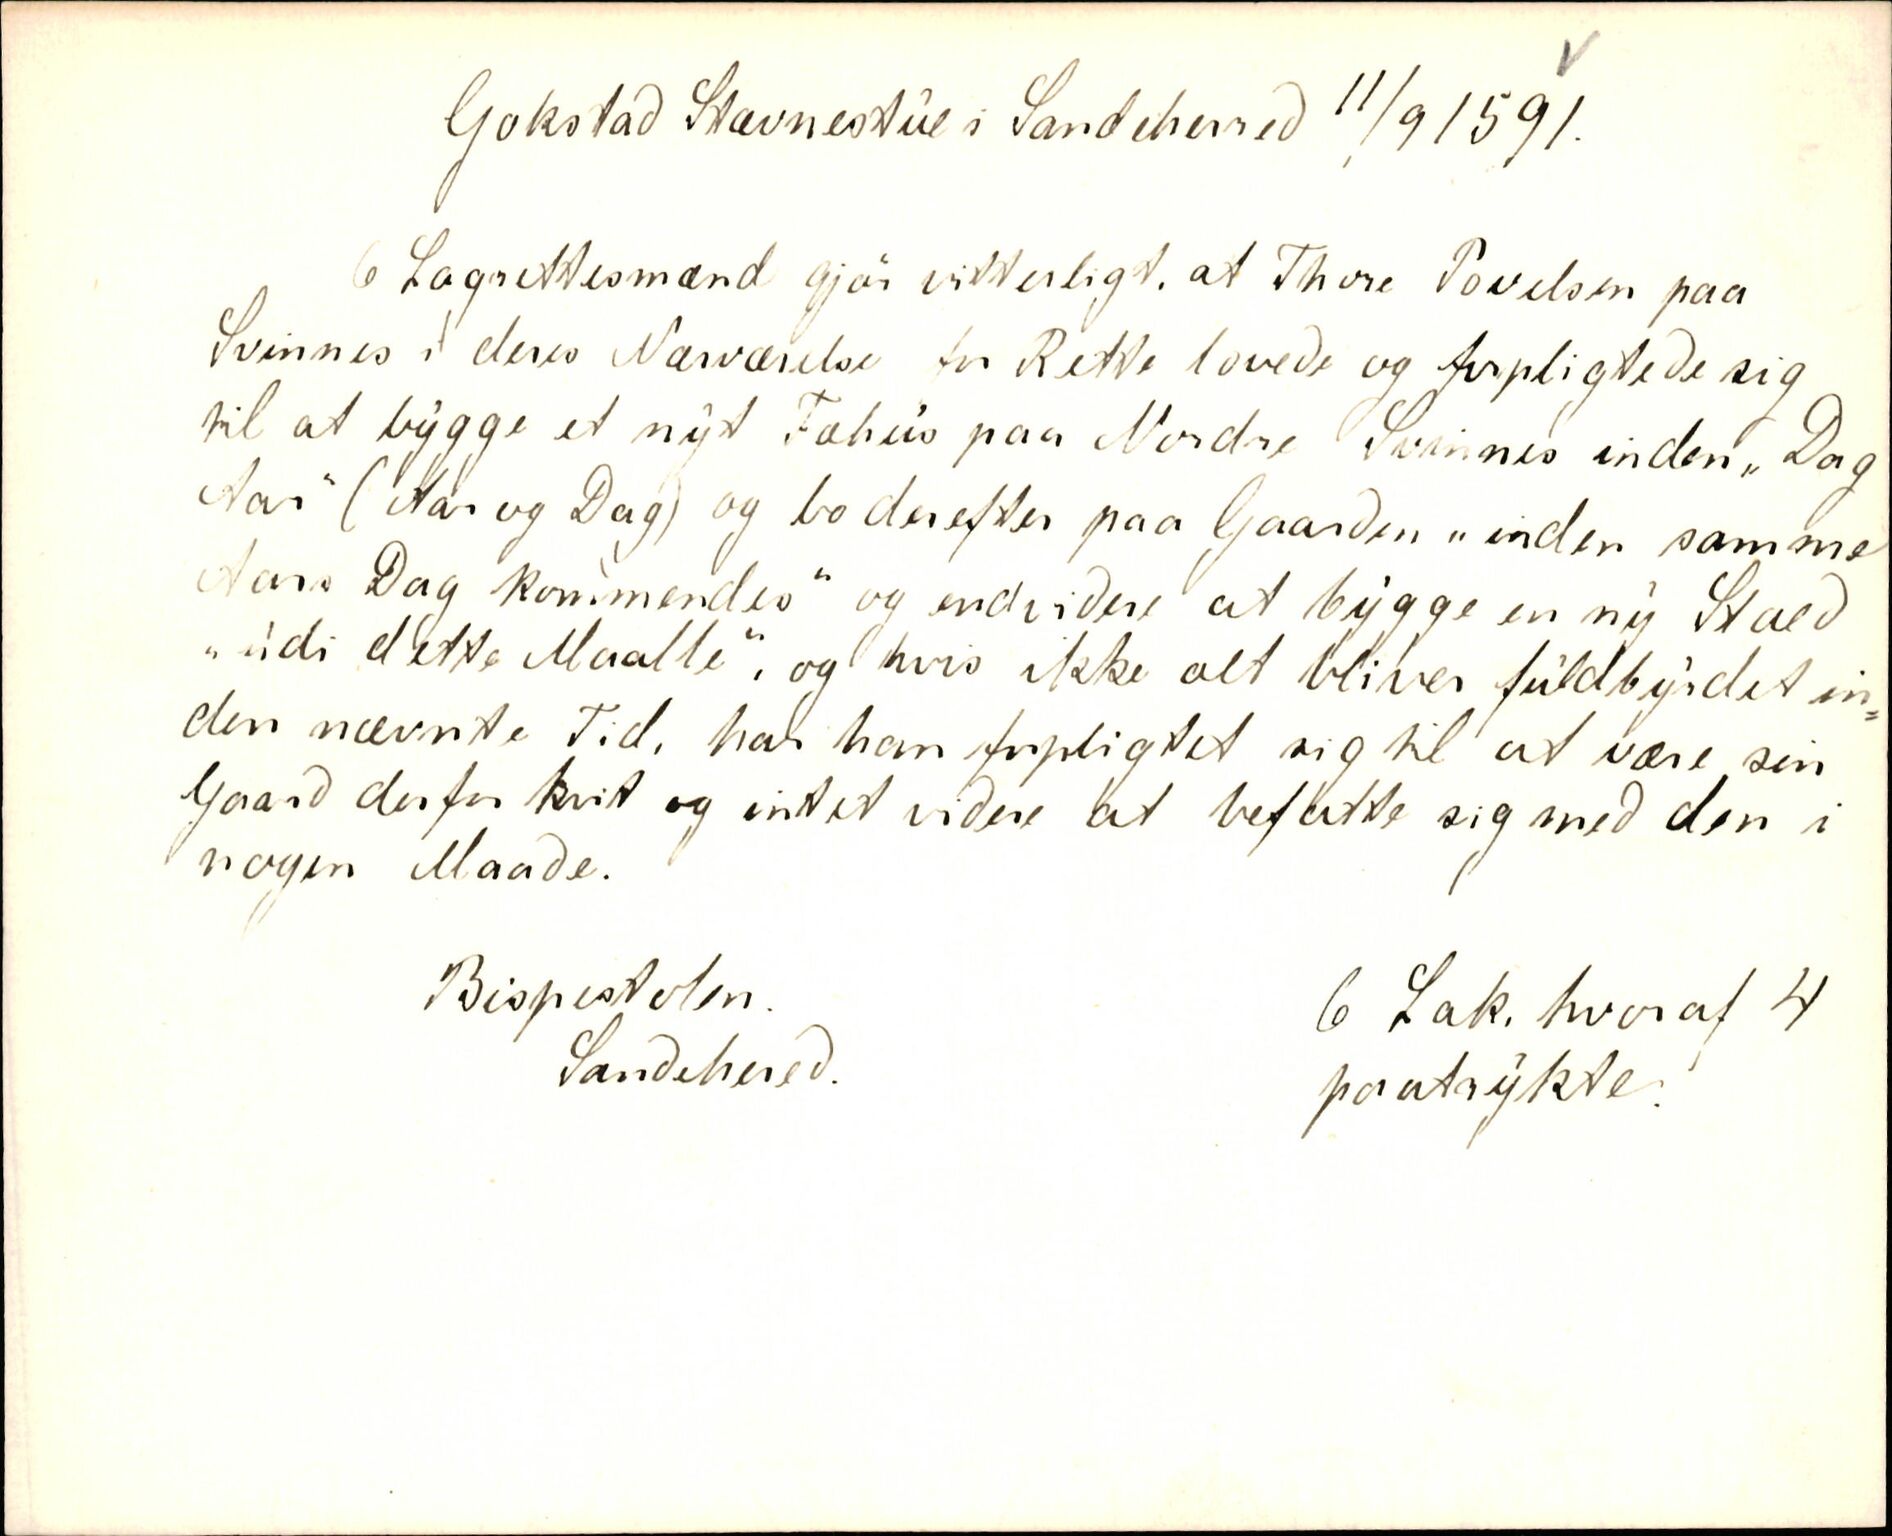 Gokstad Stævnestue i Sandeherred 11/9 1591.
6 Lagrettesmænd gjör vitterligt, at Thore Povelsen paa
Svinnes i deres Nærværelse for Rette lovede og forpligtede sig
til at bygge et nyt Fæhus paa Nordre Svinnes inden „Dag
Aar“ (Aar og Dag) og bo derefter paa Gaarden „inden samme
Aars Dag kommendes“ og endvidere at bygge en ny Stald
„udi dette Maalle“, og hvis ikke alt bliver fuldbyrdet in-
den nævnte Tid, har han forpligtet sig til at være sin
Gaard derfor kvit og intet videre at befatte sig med den i
nogen Maade.
Bispestolen.
Sandehered.
6 Lak. hvoraf 4
paatrykte.